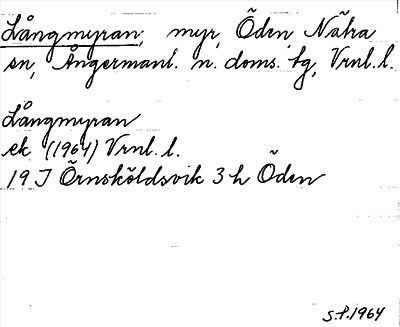 Långmyran, myr, Öden Nätra
sn, Ångermanl. n. doms. tg, Vrnl. l.
Långmyran
ek (1964) Vrnl. l.
19 J Örnsköldsvik 3 h Öden
S.P. 1964